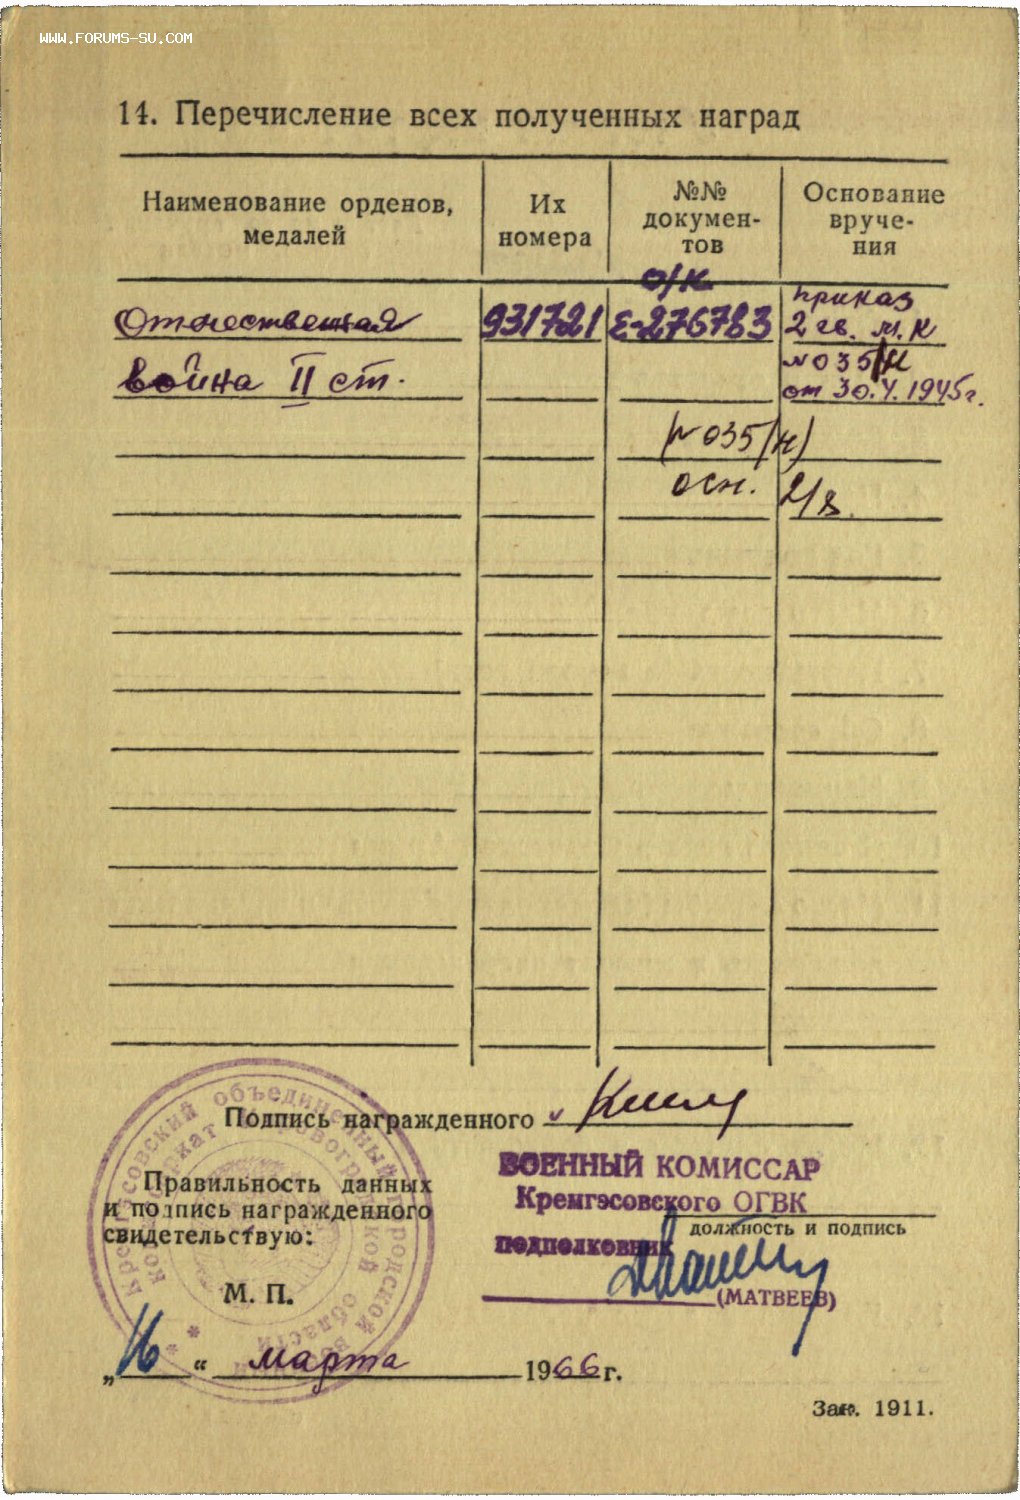 WWW.FORUMS-SU.COM
14. Перечисление всех полученных наград
Наименование орденов, медалей
Их номера
№№ документов
Основание вручения
о/к
Отечественная
война II ст.
931721
Е-276783
приказ
2 гв. м. к
№ 035/н
от 30.V.1945г.
(№ 035/н)
осн. 2/8
Подпись награжденного
Правильность данных
и подпись награжденного
свидетельствую:
М. П.
ВОЕННЫЙ КОМИССАР
Кремгэсовского ОГВК
должность и подпись
подполковник
(МАТВЕЕВ)
„16“ марта 1966 г.
Зак. 1911.
Кремгэсовский объединенный городской военный
комиссариат Кировоградской области